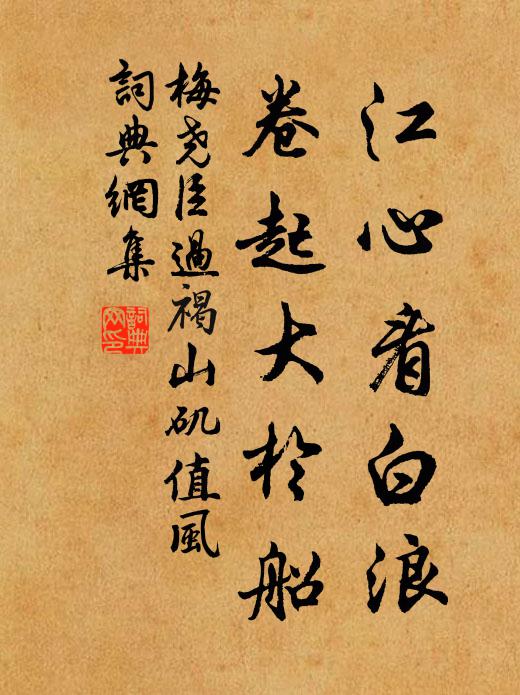 江心看白浪
卷起大於船
梅尧臣過褐山矶值風
詞典網集
詞典網印